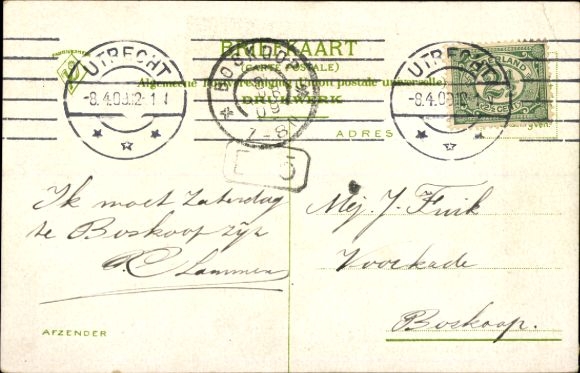 BRIEFKAART
(CARTE POSTALE)
Algemeene Postvereeniging (Union postale universelle)
DRUKWERK
UTRECHT
-8.4.09.12-1
BOSKOOP
7-8
UTRECHT
-8.4.09.
NEDERLAND
2½ CENT
ADRES
Ik moet Zaterdag
te Boskoop zijn
Mej. J. Fuik
Voorkade
Boskoop.
AFZENDER